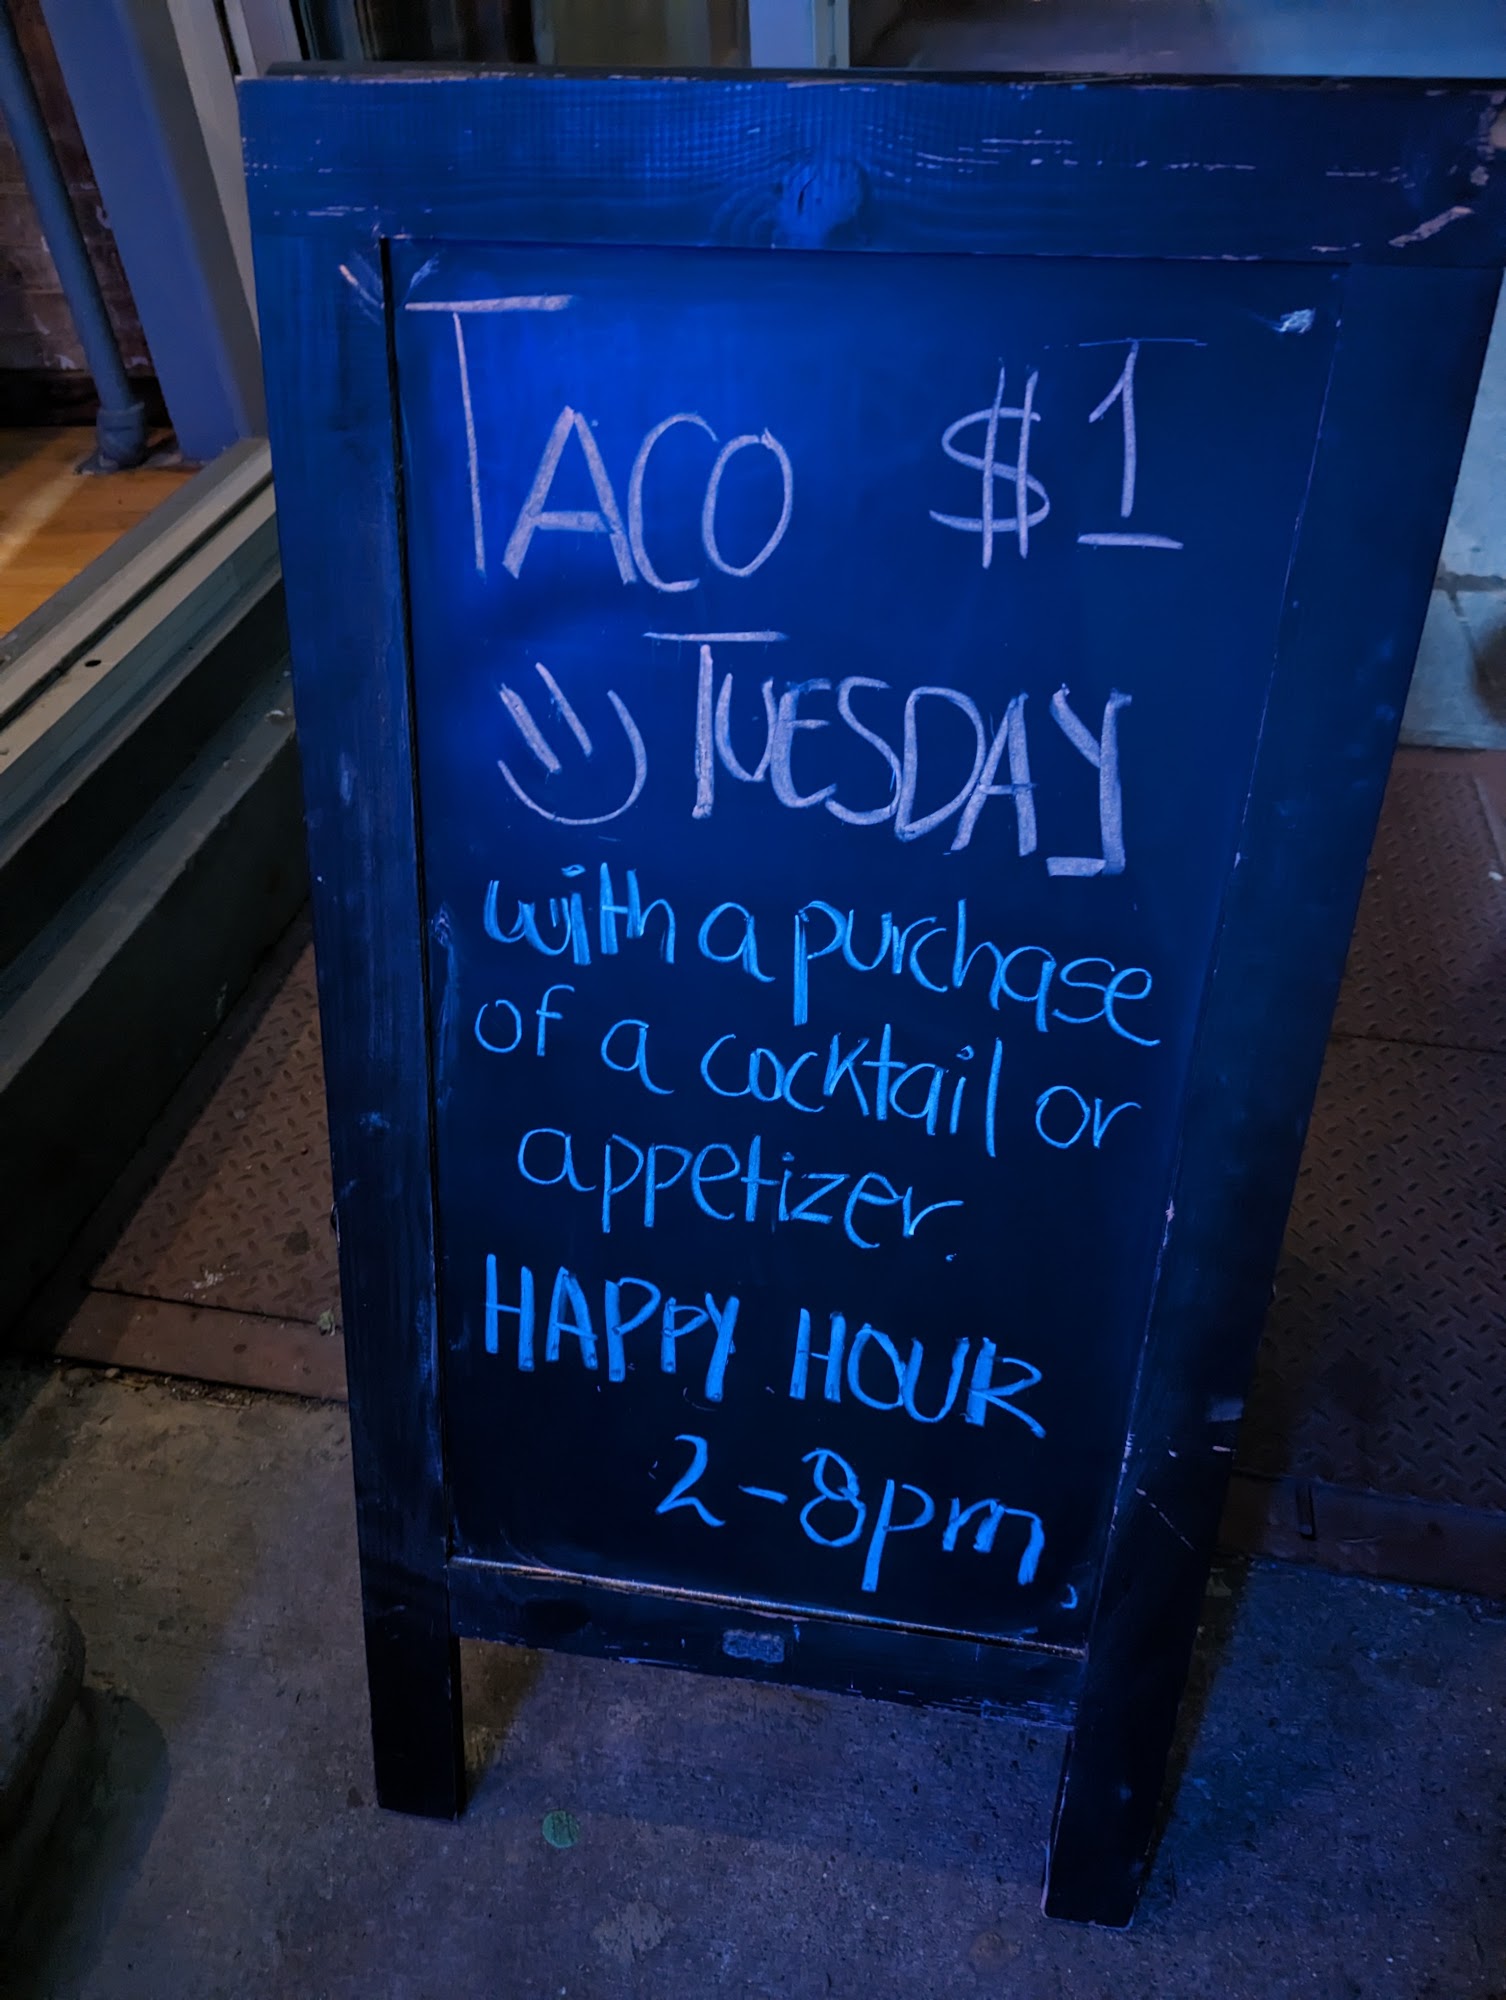 TACO $1
TUESDAY
with a purchase
of a cocktail or
appetizer.
HAPPY HOUR
2-8pm